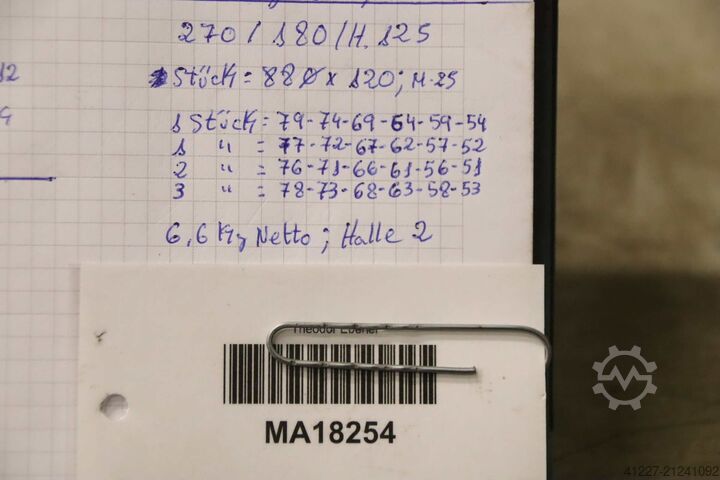 270/180/H.125
Stück = 88ø x 120; M.25
1 Stück = 79-74-69-64-59-54
1 " = 77-72-67-62-57-52
2 " = 76-71-66-61-56-51
3 " = 78-73-68-63-58-53
6,6 Kg Netto; Halle 2
MA18254
41227-21241092